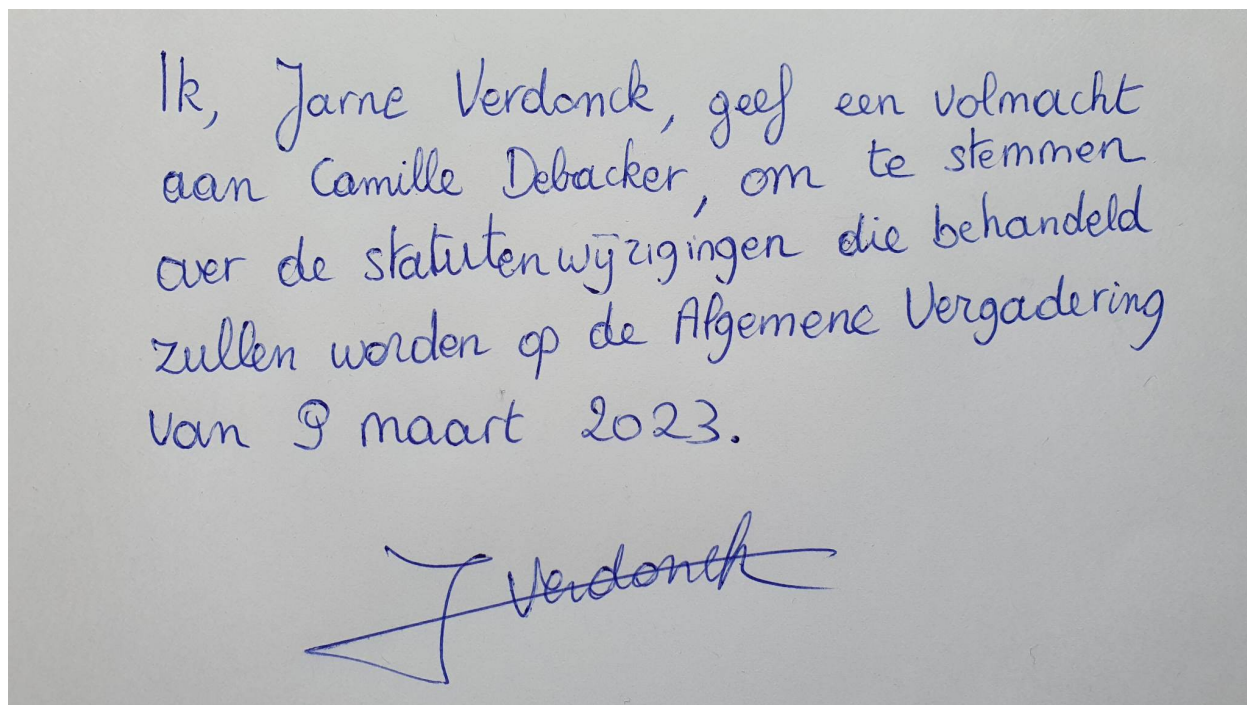 Ik, Jarne Verdonck, geef een volmacht
aan Camille Debacker, om te stemmen
over de statutenwijzigingen die behandeld
zullen worden op de Algemene Vergadering
van 9 maart 2023.
J Verdonck